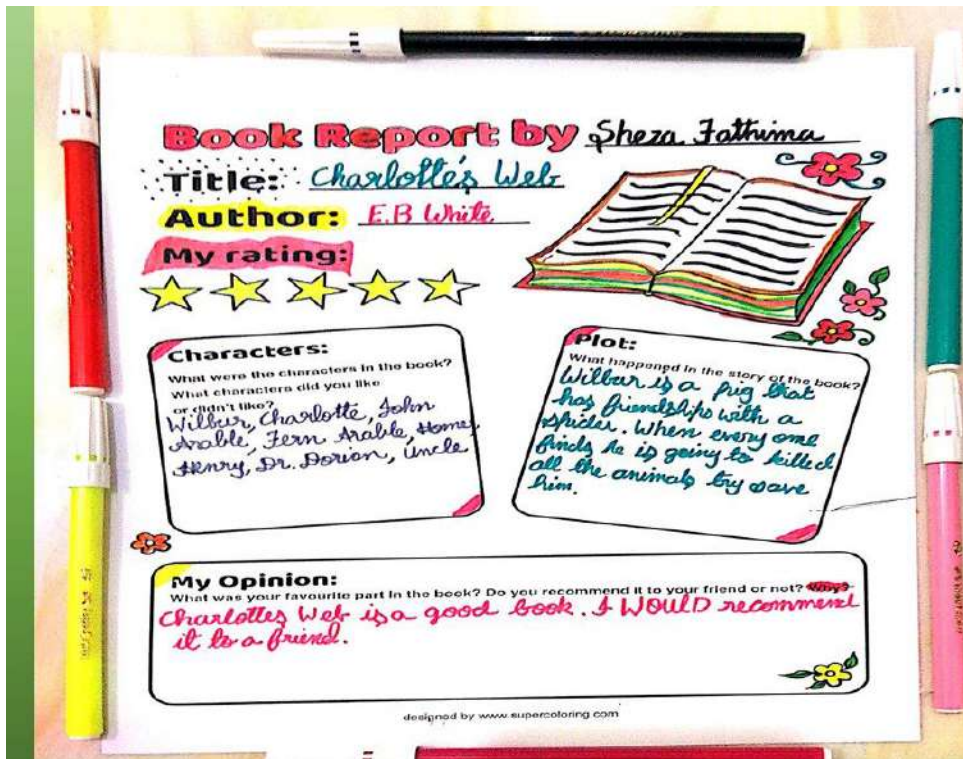 Book Report by Sheza Fathima
Title: Charlotte's Web
Author: E.B White
My rating:
Characters:
What were the characters in the book?
What characters did you like
or didn't like?
Wilbur, Charlotte, John
Arable, Fern Arable, Home,
Henry, Dr. Dorian, uncle
Plot:
What happened in the story of the book?
Wilbur is a pig that
has friendships with a
spider. When every one
finds he is going to killed
all the animals try save
him.
My Opinion:
What was your favourite part in the book? Do you recommend it to your friend or not? Why?
Charlottes Web is a good book. I WOULD recommend
it to a friend.
designed by www.supercoloring.com